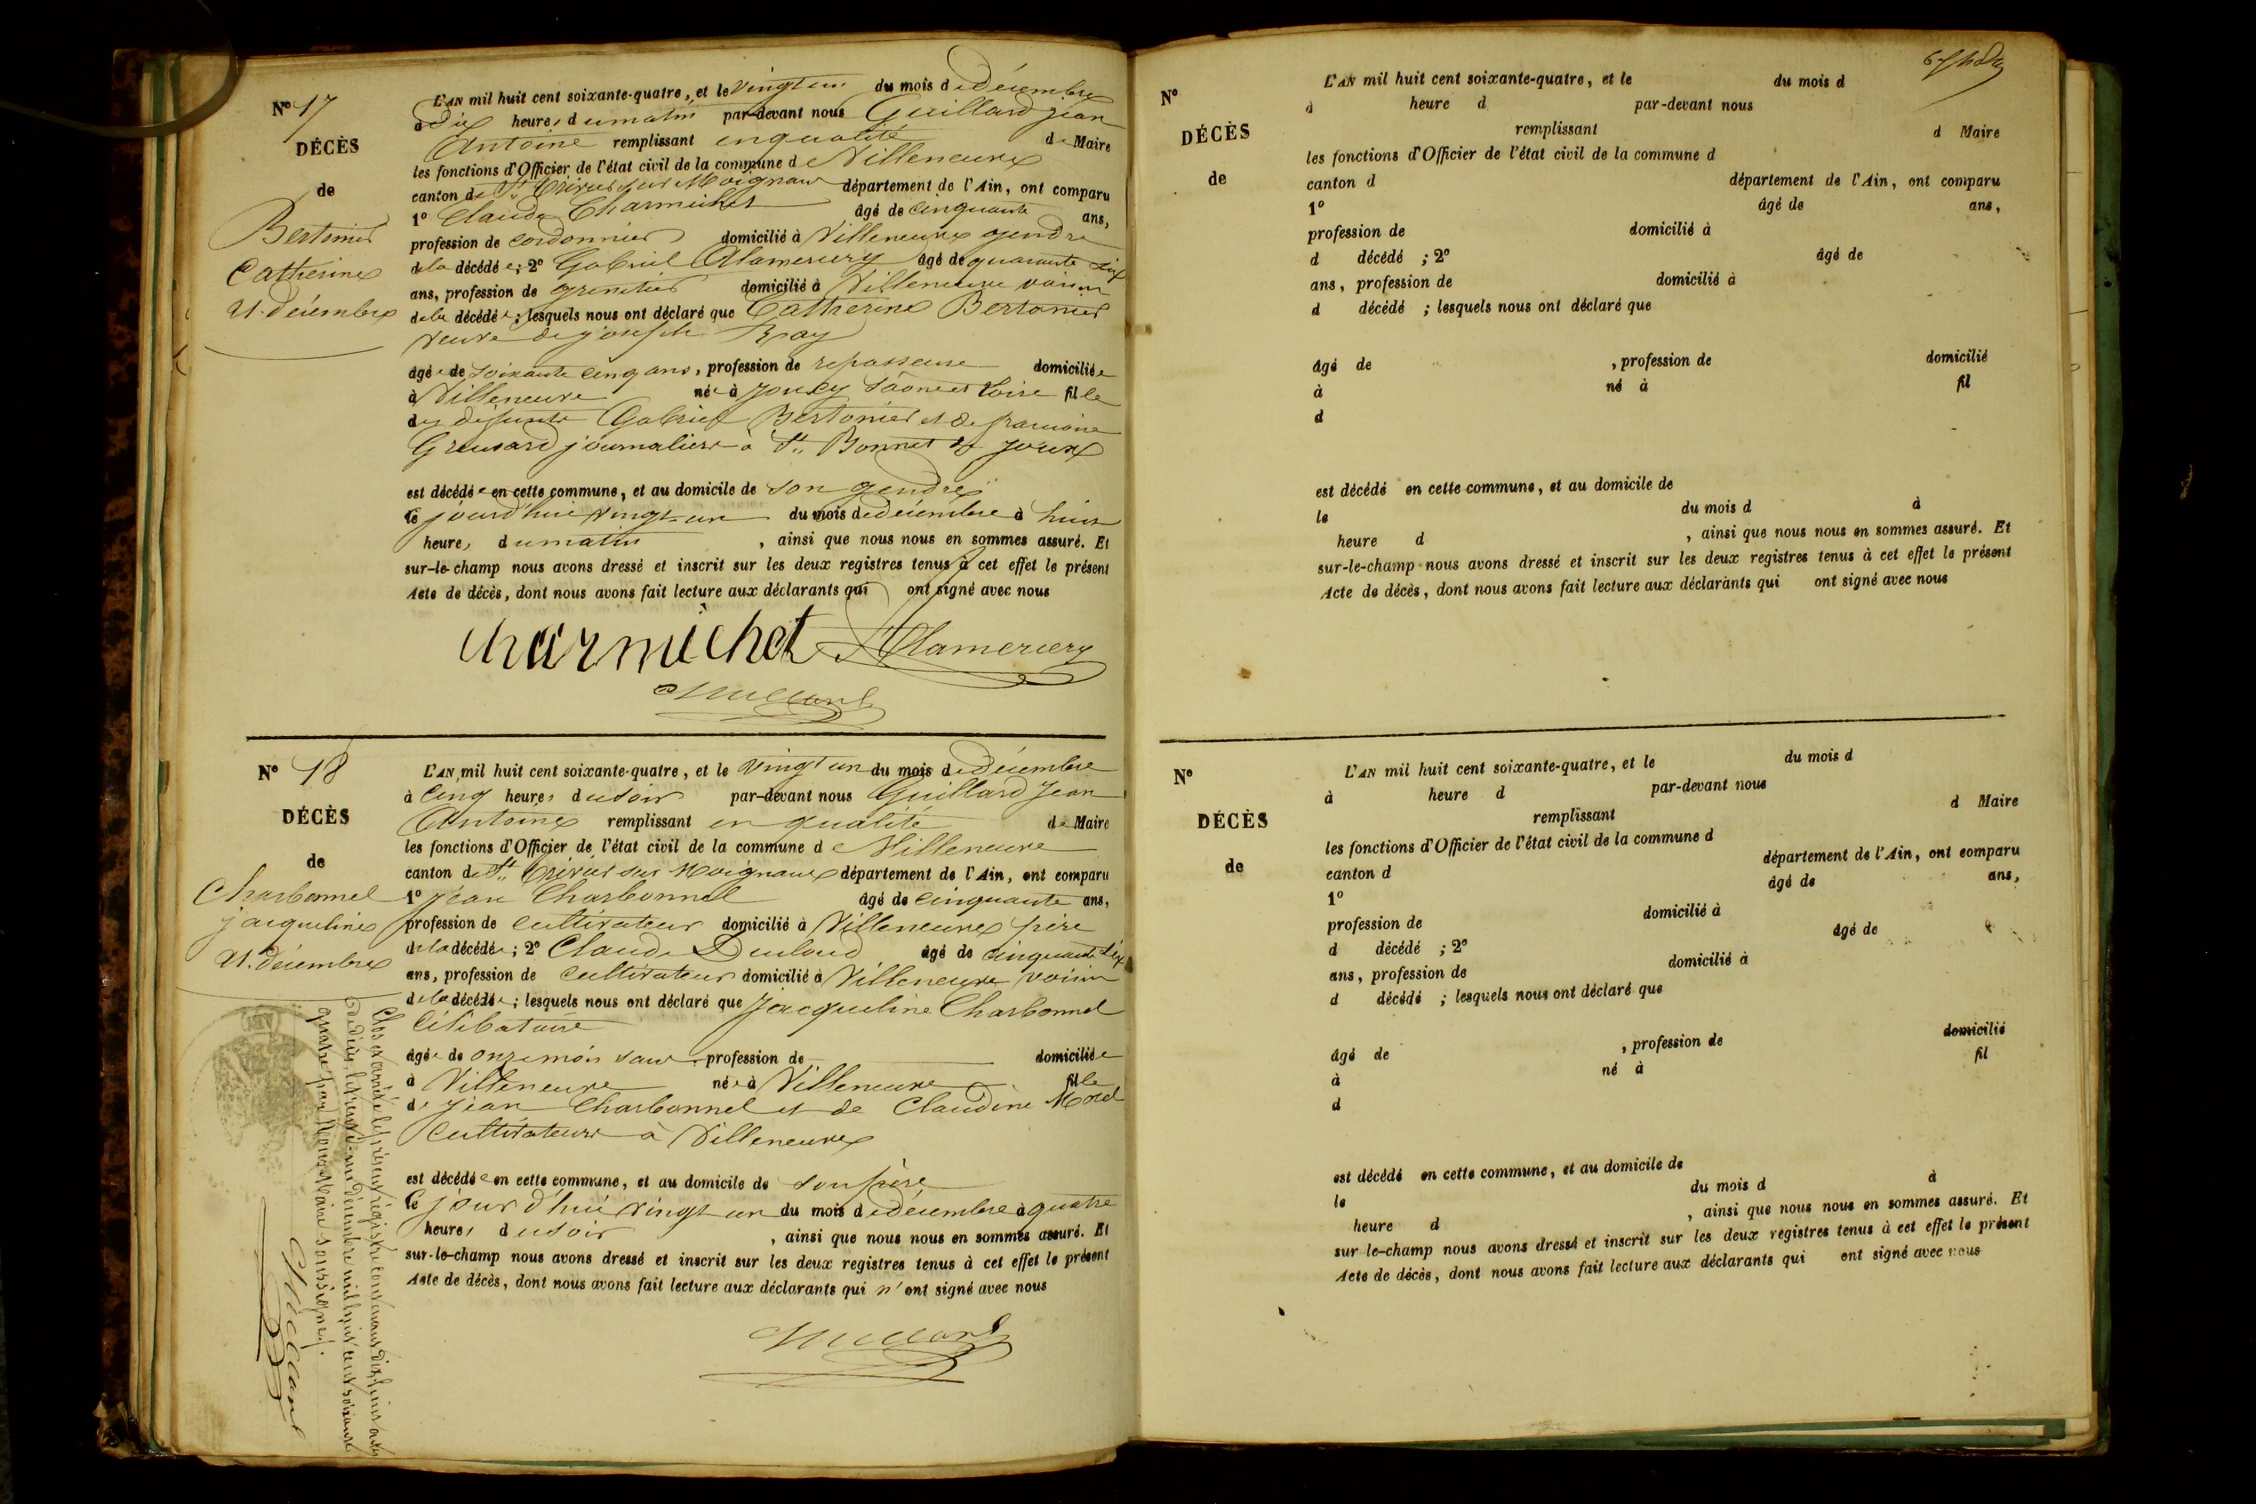 N° 17
DÉCÈS
de
Bertonier
Catherine
21. décembre
L'AN mil huit cent soixante-quatre, et le vingt un du mois de décembre
à dix heures du matin par-devant nous Guillard Jean
Antoine remplissant en qualité de Maire
les fonctions d'Officier de l'état civil de la commune de Villeneuve
canton de St. Trivier sur Moignans département de l'Ain, ont comparu
1° Claude Charmichet âgé de cinquante ans,
profession de cordonnier domicilié à Villeneuve gendre
de la décédée; 2° Gabriel Alamercery âgé de quarante six
ans, profession de domicilié à Villeneuve voisin
de la décédée; lesquels nous ont déclaré que Catherine Bertonier
veuve de joseph Ray
âgée de soixante cinq ans, profession de repasseuse domiciliée
à Villeneuve née à Saône et Loire fille
des défunts Gabriel Bertonier et de
journaliers à St. Bonnet de Joux
est décédée en cette commune, et au domicile de son gendre
le jourd'hui vingt-un du mois de décembre à huit
heures du matin, ainsi que nous nous en sommes assuré. Et
sur-le-champ nous avons dressé et inscrit sur les deux registres tenus à cet effet le présent
Acte de décès, dont nous avons fait lecture aux déclarants qui ont signé avec nous
charmichet Alamercery
Guillard
N° 18
DÉCÈS
de
Charbonnel
jacqueline
21. décembre
L'AN mil huit cent soixante-quatre, et le vingt un du mois de décembre
à cinq heures du soir par-devant nous Guillard Jean
Antoine remplissant en qualité de Maire
les fonctions d'Officier de l'état civil de la commune de Villeneuve
canton de St. Trivier sur Moignans département de l'Ain, ont comparu
1° Jean Charbonnel âgé de cinquante ans,
profession de cultivateur domicilié à Villeneuve père
de la décédée; 2° Claude Duloud âgé de cinquante six
ans, profession de cultivateur domicilié à Villeneuve voisin
de la décédée; lesquels nous ont déclaré que Jacqueline Charbonnel
célibataire
âgée de onze mois sans profession de domiciliée
à Villeneuve née à Villeneuve fille
de Jean Charbonnel et de Claudine Morel
cultivateurs à Villeneuve
est décédée en cette commune, et au domicile de son père
le jourd'hui vingt un du mois de décembre à quatre
heures du soir, ainsi que nous nous en sommes assuré. Et
sur-le-champ nous avons dressé et inscrit sur les deux registres tenus à cet effet le présent
Acte de décès, dont nous avons fait lecture aux déclarants qui n'ont signé avec nous
Guillard
Clos et arrêté le présent régistre contenant dix huit actes
de décès, le trente-un décembre mil huit cent soixante
quatre par Nous Maire soussigné.
Guillard
N°
DÉCÈS
de
L'AN mil huit cent soixante-quatre, et le du mois d
à heure d par-devant nous
remplissant d Maire
les fonctions d'Officier de l'état civil de la commune d
canton d département de l'Ain, ont comparu
1° âgé de ans,
profession de domicilié à
d décédé ; 2° âgé de
ans, profession de domicilié à
d décédé ; lesquels nous ont déclaré que
âgé de , profession de domicilié
à né à fil
d
est décédé en cette commune, et au domicile de
le du mois d à
heure d , ainsi que nous nous en sommes assuré. Et
sur-le-champ nous avons dressé et inscrit sur les deux registres tenus à cet effet le présent
Acte de décès, dont nous avons fait lecture aux déclarants qui ont signé avec nous
N°
DÉCÈS
de
L'AN mil huit cent soixante-quatre, et le du mois d
à heure d par-devant nous
remplissant d Maire
les fonctions d'Officier de l'état civil de la commune d
canton d département de l'Ain, ont comparu
1° âgé de ans,
profession de domicilié à
d décédé ; 2° âgé de
ans, profession de domicilié à
d décédé ; lesquels nous ont déclaré que
âgé de , profession de domicilié
à né à fil
d
est décédé en cette commune, et au domicile de
le du mois d à
heure d , ainsi que nous nous en sommes assuré. Et
sur-le-champ nous avons dressé et inscrit sur les deux registres tenus à cet effet le présent
Acte de décès, dont nous avons fait lecture aux déclarants qui ont signé avec nous